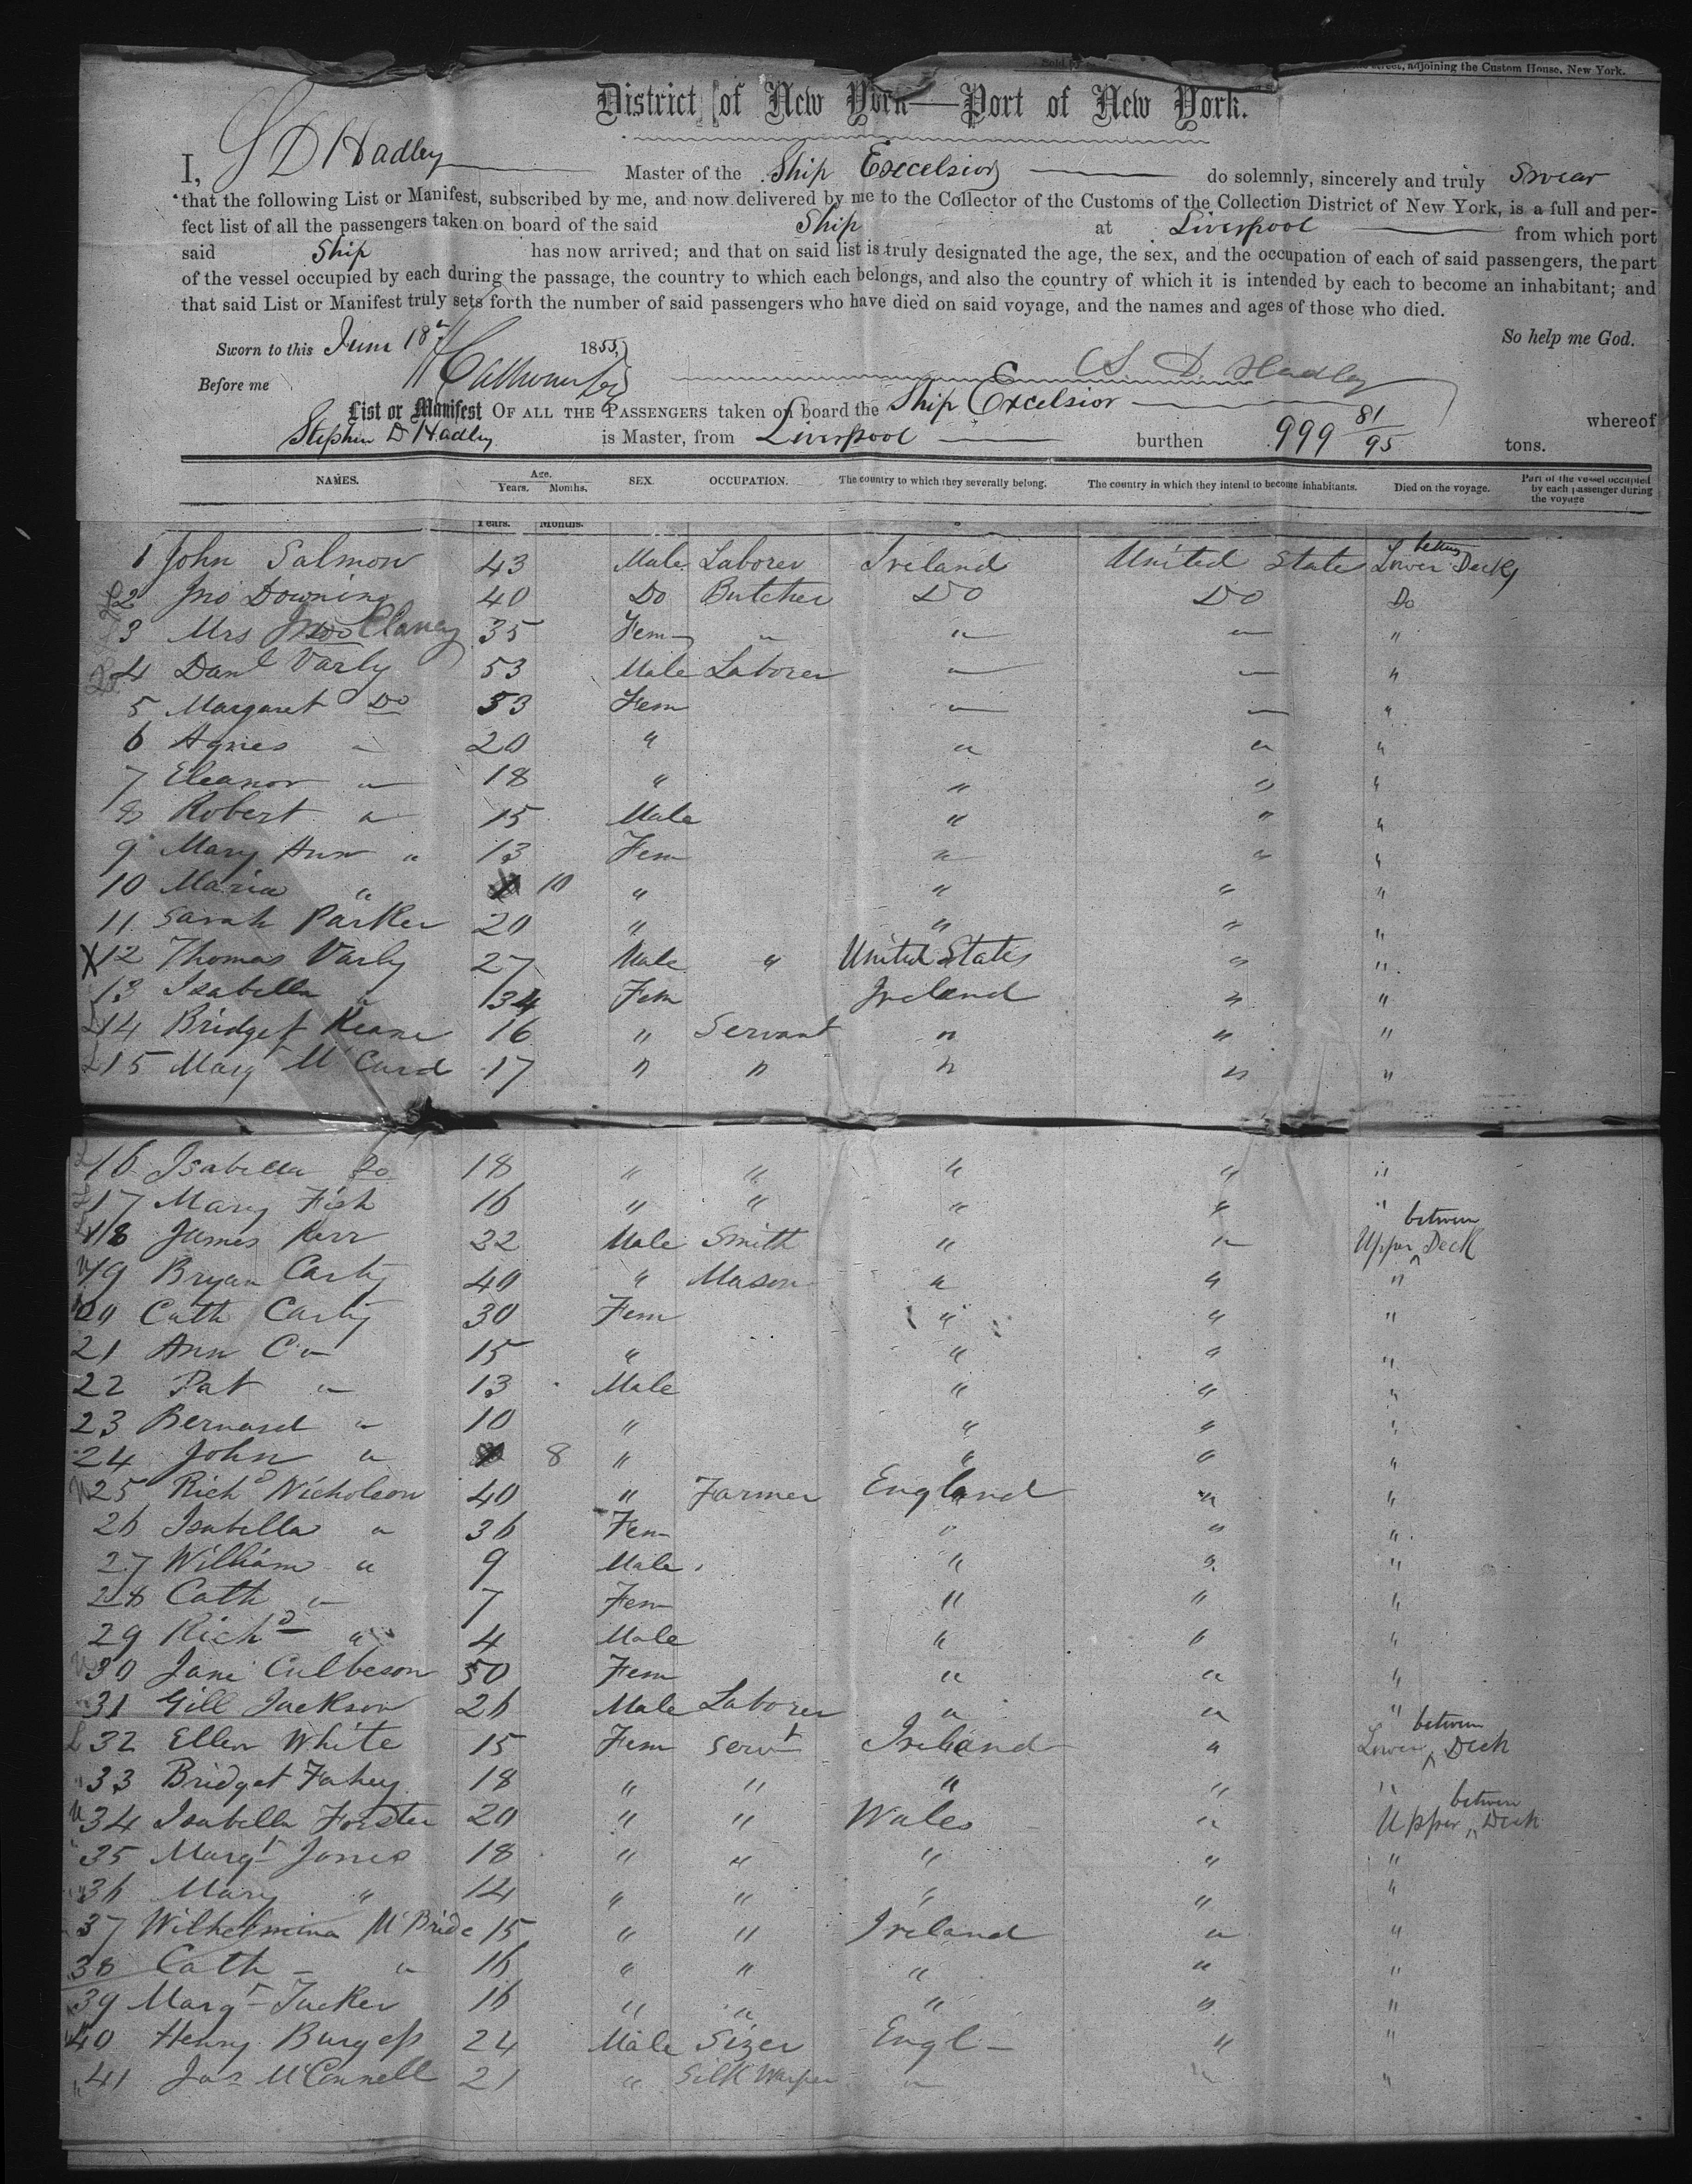 street, adjoining the Custom House, New York.
District of New York—Port of New York.
I, S D Hadley Master of the Ship Excelsior do solemnly, sincerely and truly swear
that the following List or Manifest, subscribed by me, and now delivered by me to the Collector of the Customs of the Collection District of New York, is a full and per-
fect list of all the passengers taken on board of the said Ship at Liverpool from which port
said Ship has now arrived; and that on said list is truly designated the age, the sex, and the occupation of each of said passengers, the part
of the vessel occupied by each during the passage, the country to which each belongs, and also the country of which it is intended by each to become an inhabitant; and
that said List or Manifest truly sets forth the number of said passengers who have died on said voyage, and the names and ages of those who died.
So help me God.
Sworn to this June 18th 1855
Before me S. D. Hadley
List or Manifest OF ALL THE PASSENGERS taken on board the Ship Excelsior whereof
Stephen D Hadley is Master, from Liverpool burthen 999 81/95 tons.
NAMES. Age. Years. Months. SEX. OCCUPATION. The country to which they severally belong. The country in which they intend to become inhabitants. Died on the voyage. Part of the vessel occupied by each passenger during the voyage
Years. Months.
1 John Salmon 43 Male Laborer Ireland United State Lower between Deck
2 Jno Downing 40 Do Butcher Do Do Do
3 Mrs Clancy 35 Fem " " " "
4 Danl Varly 53 Male Laborer " " "
5 Margaret Do 53 Fem " " "
6 Agnes " 20 " " " "
7 Eleanor " 18 " " " "
8 Robert " 15 Male " " "
9 Mary Ann " 13 Fem " " "
10 Maria " 10 " " " "
11 Sarah Parker 20 " " " "
X 12 Thomas Varly 27 Male " United States " "
13 Isabella " 34 Fem Ireland " "
L 14 Bridget Keane 16 " Servant " " "
L 15 Marg McCurd 17 " " " " "
L 16 Isabella Do 18 " " " " "
17 Mary Fish 16 " " " " "
18 James Kerr 22 Male Smith " " Upper between Deck
19 Bryan Carty 40 " Mason " " "
20 Cath Carty 30 Fem " " "
21 Ann C " 15 " " " "
22 Pat " 13 Male " " "
23 Bernard " 10 " " " "
24 John " 8 " " " "
25 Richd Nicholson 40 " Farmer England " "
26 Isabella " 36 Fem " " "
27 William " 9 Male " " "
28 Cath " 7 Fem " " "
29 Richd " 4 Male " " "
30 Jane Culbeson 50 Fem " " "
31 Gill Jackson 26 Male Laborer " " "
L 32 Ellen White 15 Fem Servt Ireland " Lower between Deck
" 33 Bridget Fahey 18 " " " " "
U 34 Isabella Forster 20 " " Wales " Upper between Deck
" 35 Margt Jones 18 " " " " "
" 36 Mary " 14 " " " " "
37 Wilhelmina McBride 15 " " Ireland " "
38 Cath " 16 " " " " "
39 Margt Tucker 16 " " " " "
40 Henry Burgess 24 Male Sizer Engl " "
" 41 Jas McConnell 21 " Silk Warper " " "